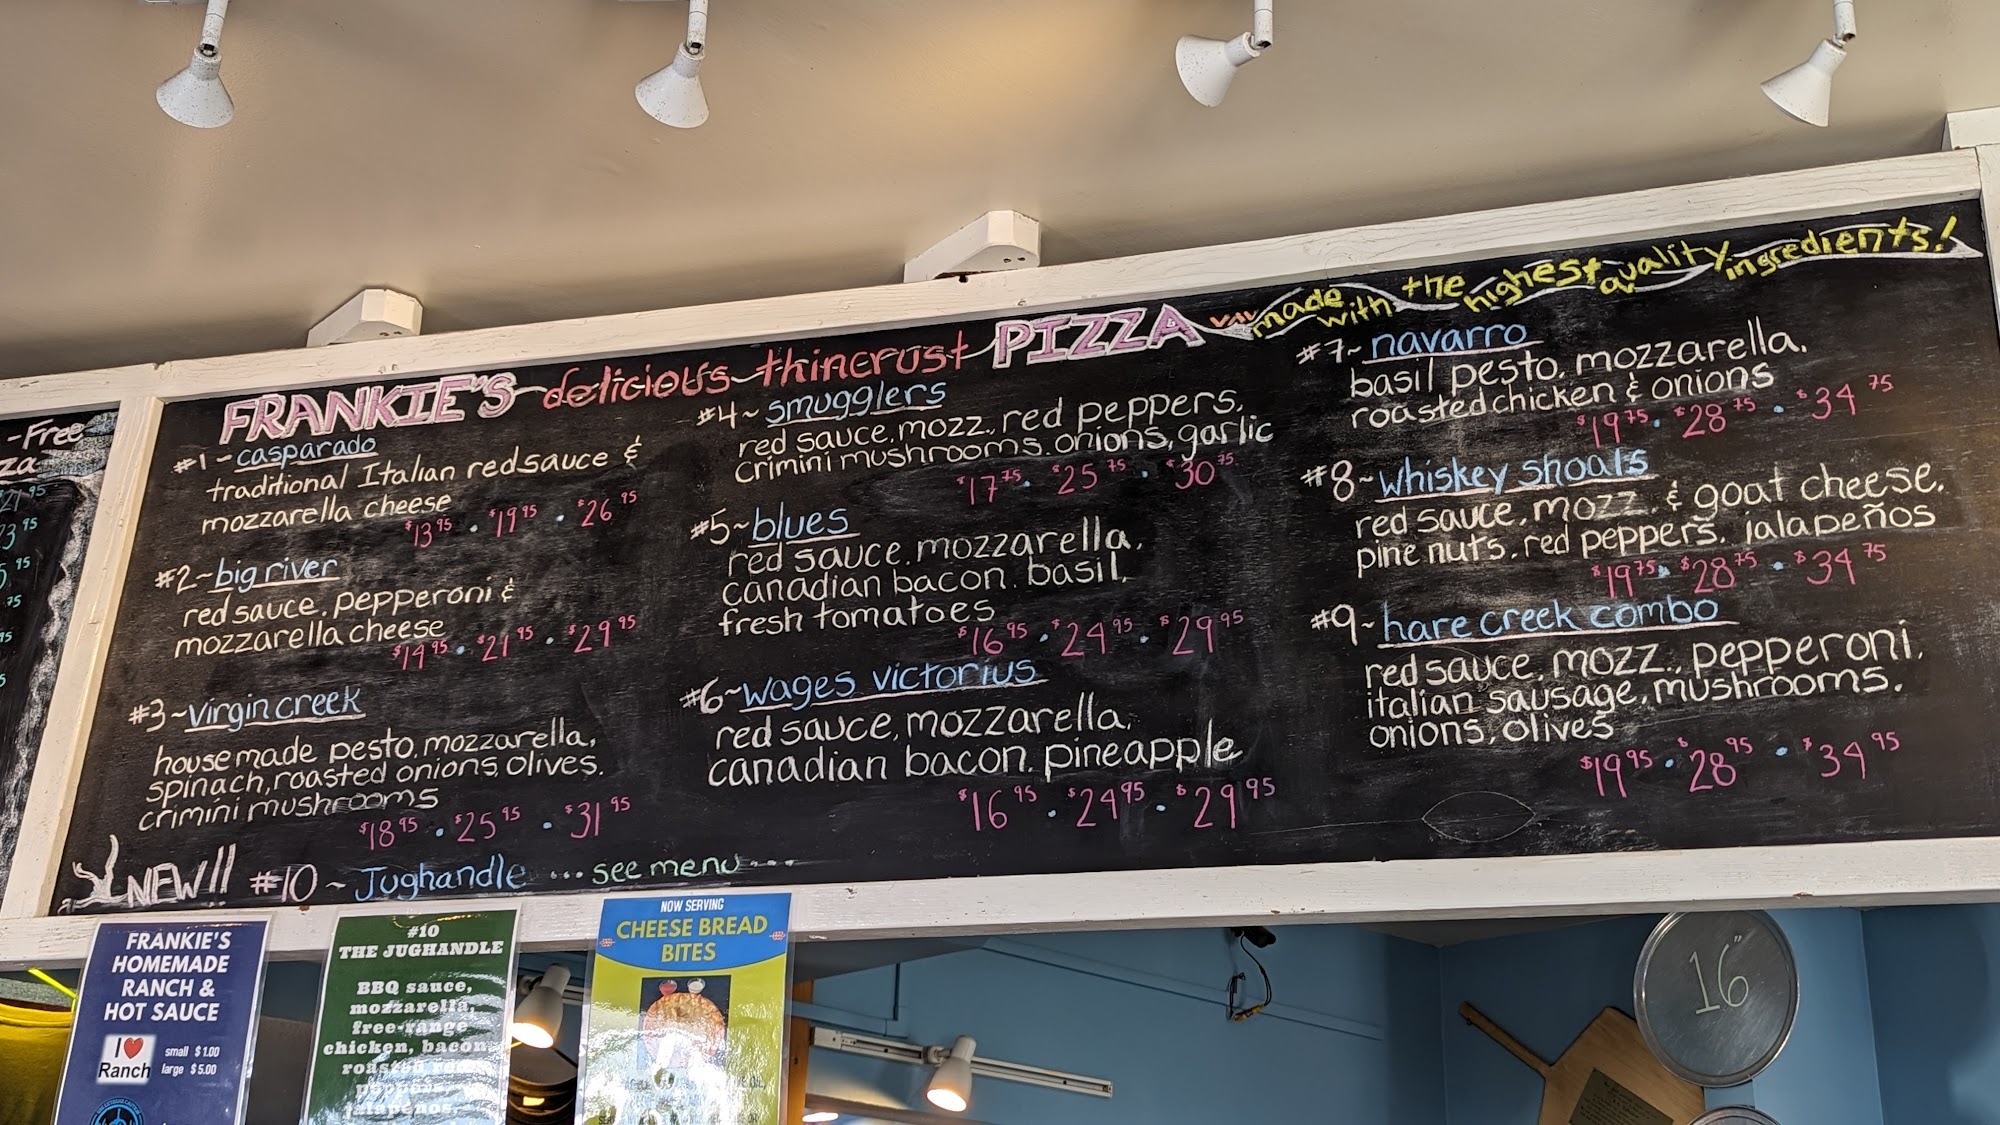 -Free
za
$21 95
3 95
5 95
75
95
5
FRANKIE'S delicious thincrust PIZZA
made with the highest quality ingredients!
#1~casparado
traditional Italian red sauce &
mozzarella cheese
$13 95 · $19 95 · $26 95
#2~big river
red sauce, pepperoni &
mozzarella cheese
$14 95 · $21 95 · $29 95
#3~virgin creek
housemade pesto, mozzarella,
spinach, roasted onions, olives,
crimini mushrooms
$18 95 · $25 95 · $31 95
NEW!! #10 ~ Jughandle ...see menu...
#4~smugglers
red sauce, mozz., red peppers,
crimini mushrooms, onions, garlic
$17 75 · $25 75 · $30 75
#5~blues
red sauce, mozzarella,
canadian bacon, basil,
fresh tomatoes
$16 95 · $24 95 · $29 95
#6~wages victorius
red sauce, mozzarella,
canadian bacon, pineapple
$16 95 · $24 95 · $29 95
#7~navarro
basil pesto, mozzarella,
roasted chicken & onions
$19 75 · $28 75 · $34 75
#8~whiskey shoals
red sauce, mozz. & goat cheese,
pine nuts, red peppers, jalapeños
$19 75 · $28 75 · $34 75
#9~hare creek combo
red sauce, mozz., pepperoni,
italian sausage, mushrooms,
onions, olives
$19 95 · $28 95 · $34 95
FRANKIE'S
HOMEMADE
RANCH &
HOT SAUCE
I
Ranch
small $1.00
large $5.00
#10
THE JUGHANDLE
BBQ sauce,
mozzarella,
free-range
chicken, bacon,
roasted red
peppers,
jalapenos,
NOW SERVING
CHEESE BREAD
BITES
16"